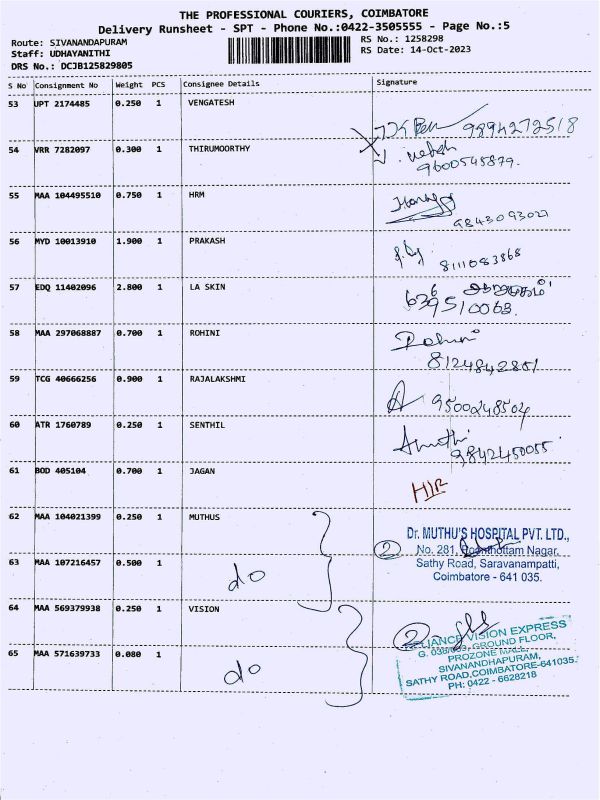 THE PROFESSIONAL COURIERS, COIMBATORE
Delivery Runsheet - SPT - Phone No.:0422-3505555 - Page No.:5
Route: SIVANANDAPURAM
RS No.: 1258298
Staff: UDHAYANITHI
RS Date: 14-Oct-2023
DRS No.: DCJB125829805
S No Consignment No Weight PCS Consignee Details Signature
53 UPT 2174485 0.250 1 VENGATESH
9894272518
54 VRR 7282097 0.300 1 THIRUMOORTHY
9600545879.
55 MAA 104495510 0.750 1 HRM
9843093027
56 MYD 10013910 1.900 1 PRAKASH
8111083868
57 EDQ 11402096 2.800 1 LA SKIN
6369510063.
58 MAA 297068887 0.700 1 ROHINI
Rohini
8124842851
59 TCG 40666256 0.900 1 RAJALAKSHMI
9500248504
60 ATR 1760789 0.250 1 SENTHIL
9842450055
61 BOD 405104 0.700 1 JAGAN
62 MAA 104021399 0.250 1 MUTHUS
Dr. MUTHU'S HOSPITAL PVT. LTD.,
2 No. 281, Nagar,
63 MAA 107216457 0.500 1 do
Sathy Road, Saravanampatti,
Coimbatore - 641 035.
64 MAA 569379938 0.250 1 VISION
2 RELIANCE VISION EXPRESS
GROUND FLOOR,
65 MAA 571639733 0.080 1 do
PROZONE MALL,
SIVANANDHAPURAM,
SATHY ROAD,COIMBATORE-641035.
PH: 0422 - 6628218